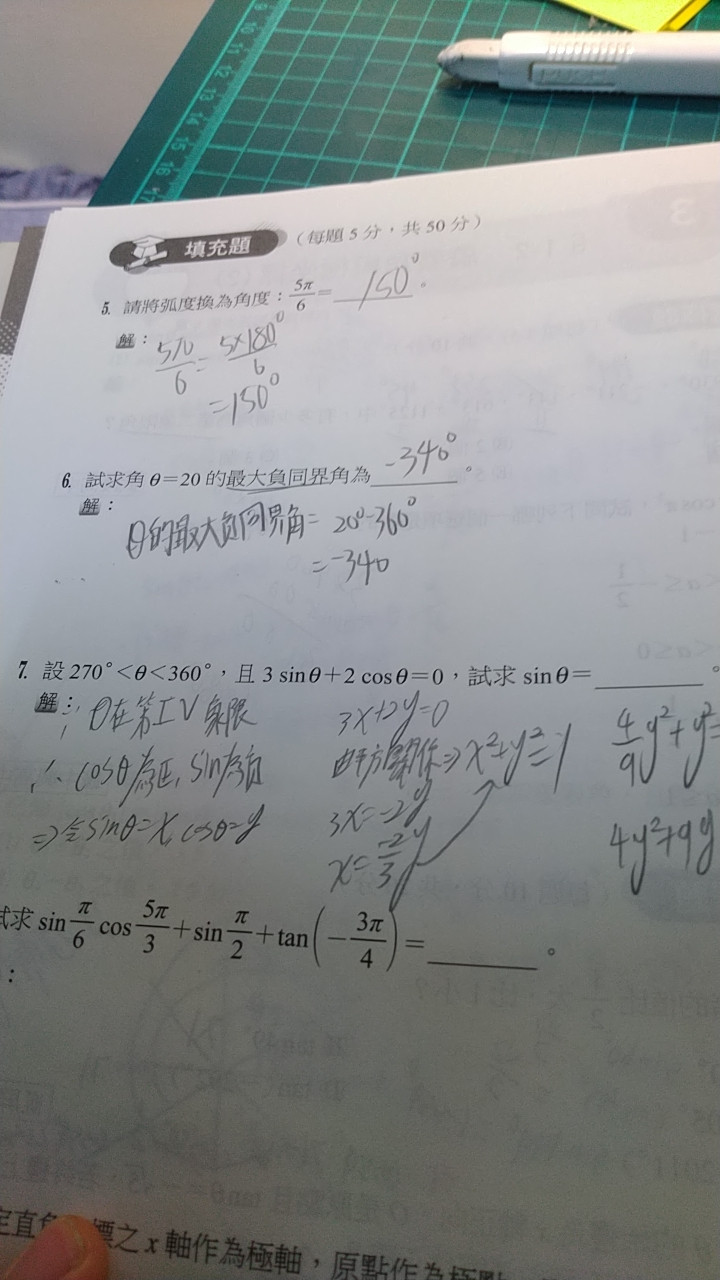 填充題 (每題 5 分，共 50 分)
5. 請將弧度換為角度：5π/6＝ 150° 。
解： 5π/6 = 5×180°/6
=150°
6. 試求角 θ＝20 的最大負同界角為 -340° 。
解：
θ的最大負同界角= 20°-360°
= -340
7. 設 270°<θ<360°，且 3 sinθ＋2 cosθ＝0，試求 sinθ＝ 。
解： ∵ θ在第IV象限
∴ cosθ為正, sin為負
⇒令sinθ=x, cosθ=y
3x+2y=0
由平方關係⇒x²+y²=1
3x=-2y
x=-2/3 y
4/9 y²+y²=
4y²+9y
試求 sin π/6 cos 5π/3＋sin π/2＋tan(－3π/4)＝ 。
：
之 x 軸作為極軸，原點作為極點